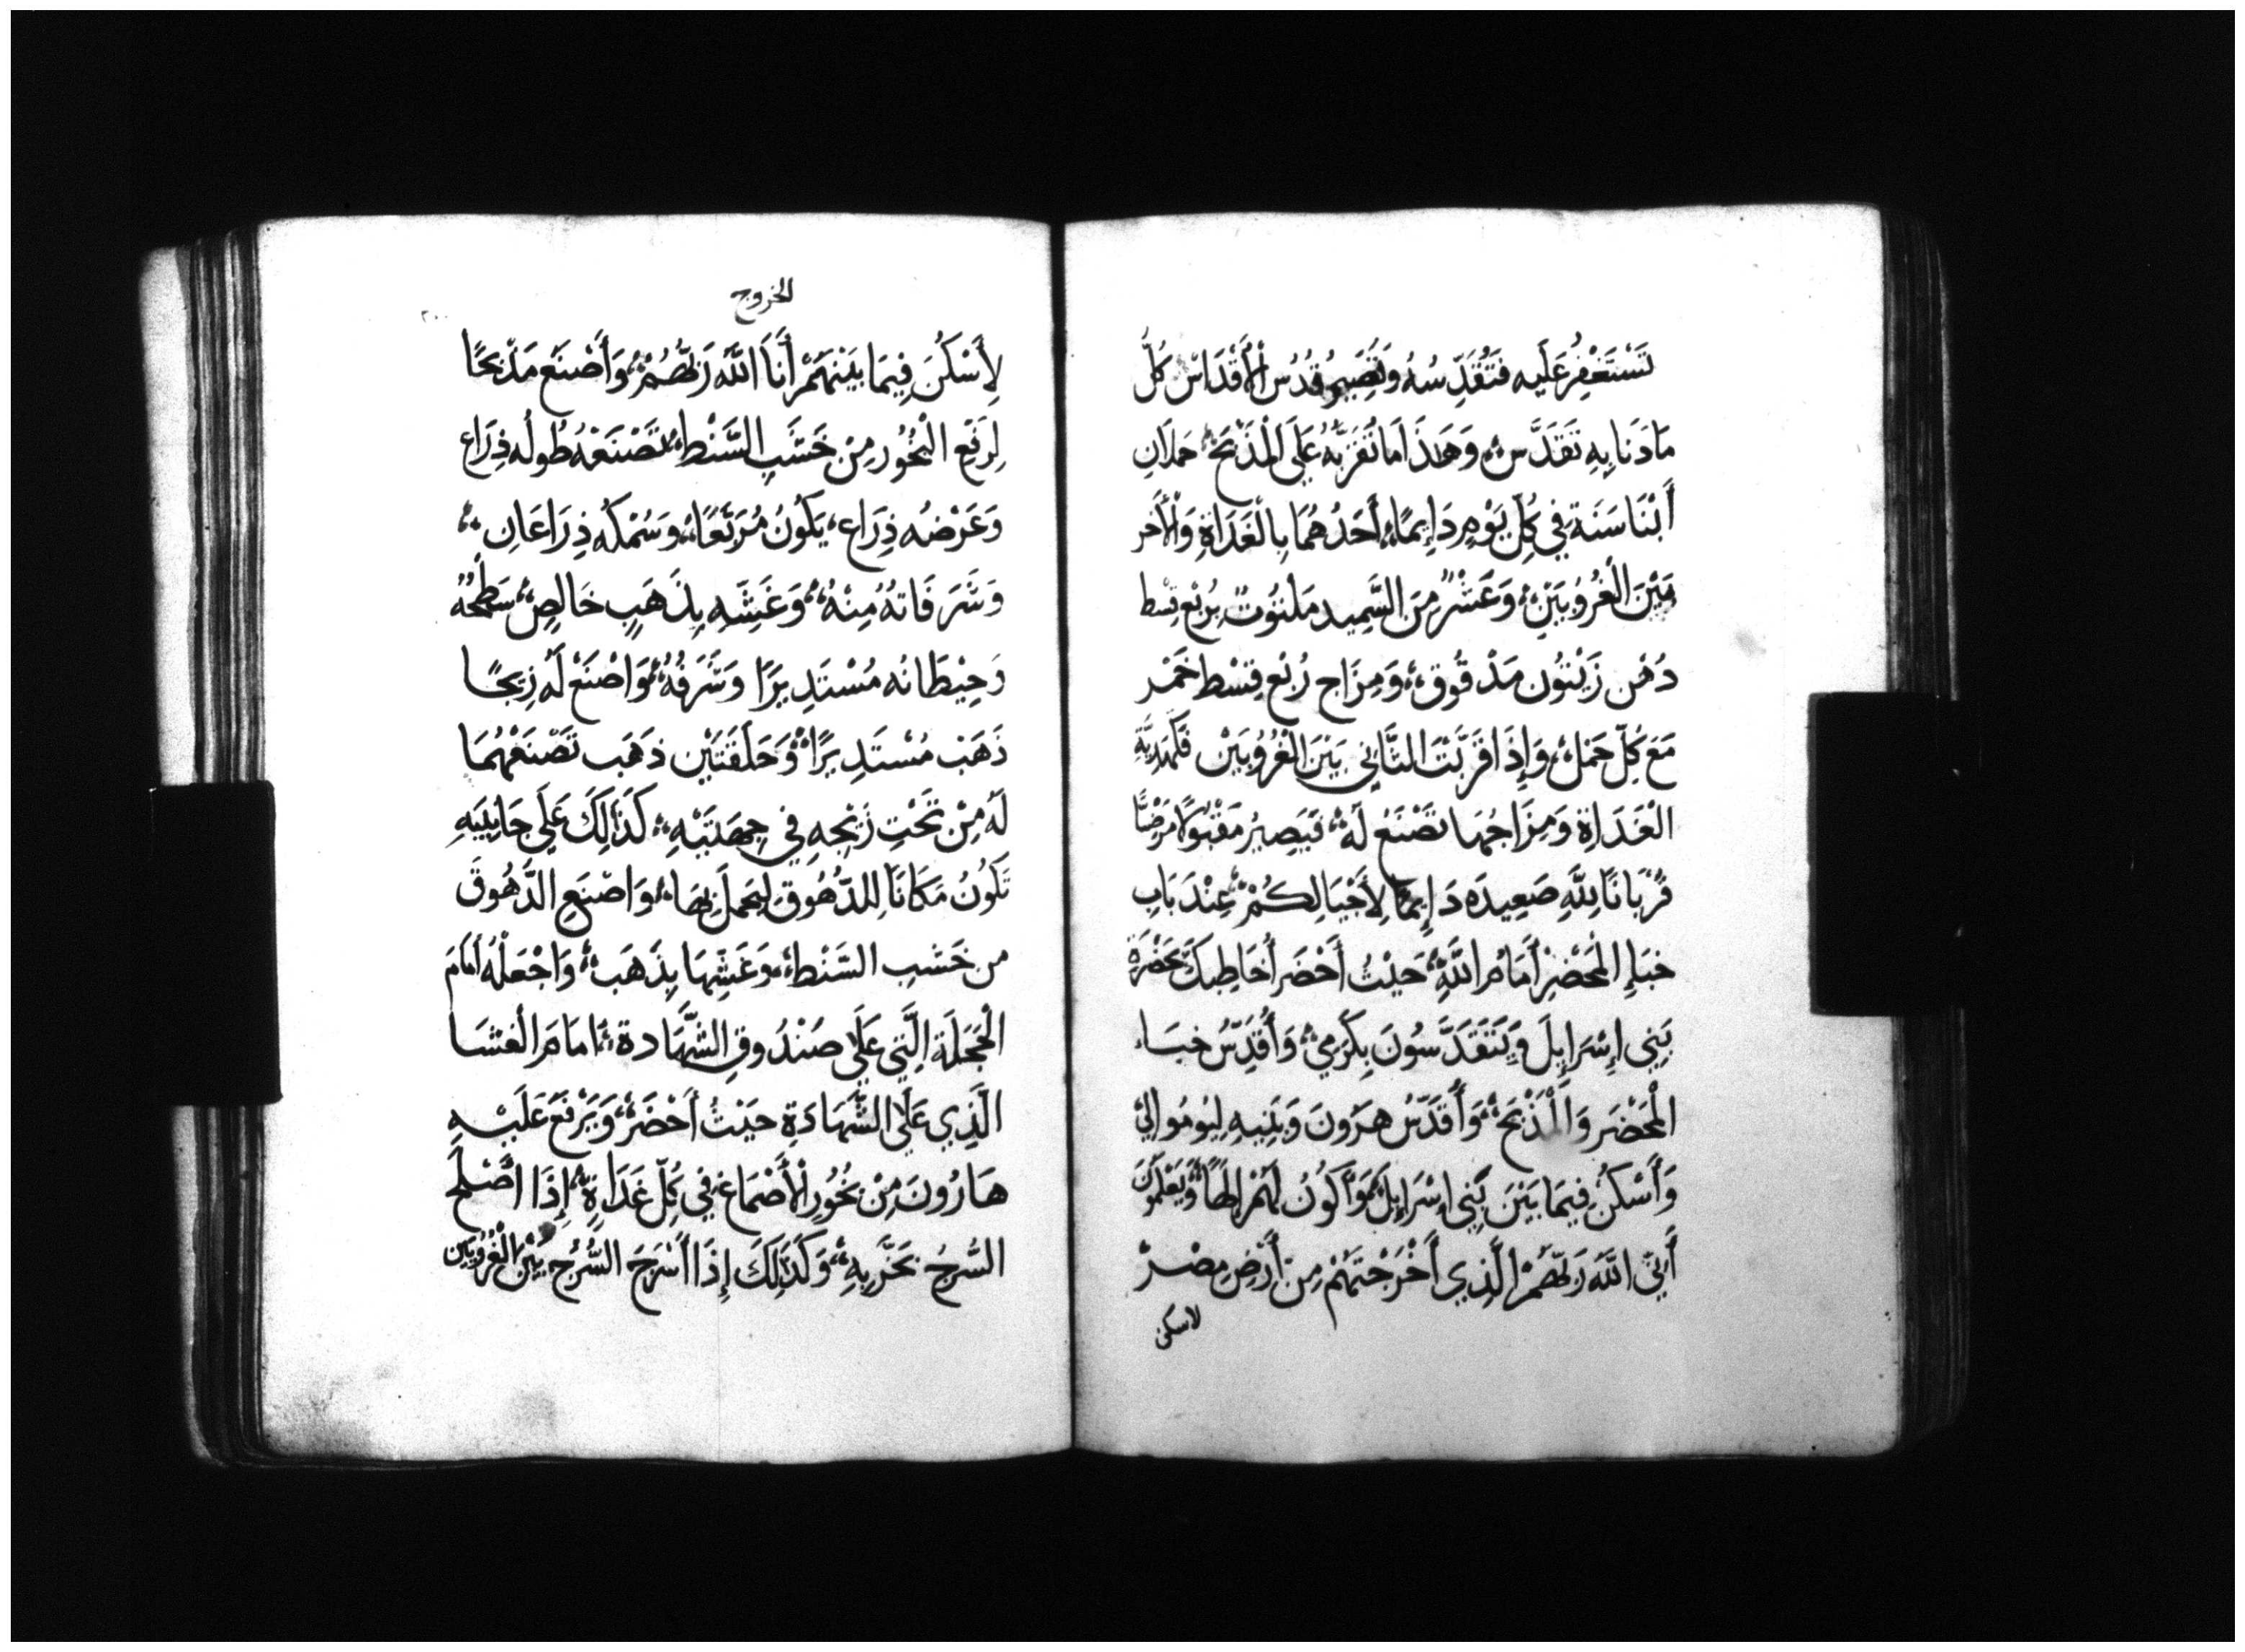 تَسْتَغْفِرُ عَلَيه فَتُقَدِّسُهُ وَيَصِيرُ قُدُسُ الْأَقْدَاسْ كُلُّ
مَا دَنَا بِهِ تَقَدَّسْ، وَهَذَا مَا تُقَرِّبُهُ عَلَى الْمَذْبَحْ حَمَلَانِ
أَبْنَا سَنَةٍ فِي كُلِّ يَوْمٍ دَايِمًا، أَحَدُهُمَا بِالْغَدَاةِ وَالْأَخر
بَيْنَ الْغُرُوبَيْنِ، وَعَشْرٌ مِنَ السَّمِيد مَلْتُوتٌ بِرُبْعِ قِسْط
دُهْن زَيْتُون مَدْقُوق، وَمِزَاج رُبْع قِسْط خَمْر
مَعَ كُلِّ حَمَلْ، وَإِذَا قَرَّبْتَ الثَّانِي بَيْنَ الْغُرُوبَيْن فَكَهَدِيَّةِ
الْغَدَاةِ وَمِزَاجُهَا تَصْنَعُ لَهْ، فَيَصِيرُ مَقْبُولًا مَرْضِيًّا
قُرْبَانًا لِلَّهِ صَعِيدَه دَايِمًا لِأَجْيَالِكُمْ، عِنْدَ بَابِ
خبَاءِ الْمَحْضِرْ أَمَامَ اللَّهِ، حَيْثُ أَحْضَر أُخَاطِبكَ بحَضْرَةِ
بَنِي إِسْرَايِلَ وَيَتَقَدَّسُونَ بِكَرَمِي، وَأُقَدِّسُ خبَاء
الْمَحْضَر وَالْمَذْبَحْ، وَأُقَدِّسُ هَرُونَ وَبَنِيهِ لِيُومُوا لِي
وَأَسْكُنُ فِيمَا بَيْنَ بَنِي إِسْرَايِلْ، وَأَكُونُ لَهُمْ إِلَهًا، وَيَعْلَمُونَ
أَنِّي اللَّهُ رَبُّهُمْ الَّذِي أَخْرَجْتُهُمْ مِنْ أَرْضِ مِصْرْ
لاسكن
الخروج
٢٠٠
لِأَسْكُنَ فِيمَا بَيْنَهُمْ أَنَا اللَّهُ رَبُّهُمْ، وَأَصْنَعْ مَذْبَحًا
لِرَفْعِ الْبَخُور مِنْ خَشَبِ السَّنْطِ، تَصْنَعْهُ طُولُه ذِرَاع
وَعَرْضُه ذِرَاع، يَكُونُ مُرَبَّعًا، وَسُمْكُه ذِرَاعَانِ،
وَشَرَفَاتهُ مِنْهُ، وَغَشِّه بِذَهَبٍ خَالِصٍ، سَطْحُهُ
وَحِيْطَانُه مُسْتَدِيرًا وَشَرَفُهُ، وَاصْنَعْ لَهُ زِيجًا
ذَهَبْ مُسْتَدِيرًا، وَحَلْقَتَيْنِ ذَهَب تَصْنَعْهُمَا
لَهُ مِنْ تَحْتِ زِيْجِهِ فِي جِهَتَيْهِ، كَذَلِكَ عَلَى جَانِبَيهِ
تَكُونُ مَكَانَا لِلدُّهُوقِ لِيَحْمِلَ بِهَا، وَاصْنَعِ الدُّهُوقَ
من خَشَبِ السَّنْطِ، وَغَشِّهَا بِذَهَبْ، وَاجْعَلْهُ أَمَامَ
الْحَجَلَةِ الَّتِي عَلَى صَنْدُوقِ الشَّهَادة، أمَامَ الْغشَا
الَّذِي عَلَى الشَّهَادَةِ حَيْثُ أَحْضَرْ، وَيَرْفَعُ عَلَيْهِ
هَارُونَ مِنْ بَخُورِ الْأَصْمَاغ فِي كُلِّ غَدَاةٍ، إِذَا أَصْلَحَ
السُّرجَ بَخَّرَ بِهِ، وَكَذَلِكَ إِذَا أَسْرَجَ السُّرُج بَيْنَ الْغُرُوبَيْنِ